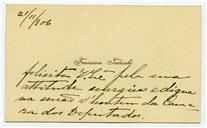 21/11/906
Francisco
felicita V. Exª pela sua
attitude energica e digna
na sessão d'hontem da Cama-
ra dos Deputados.